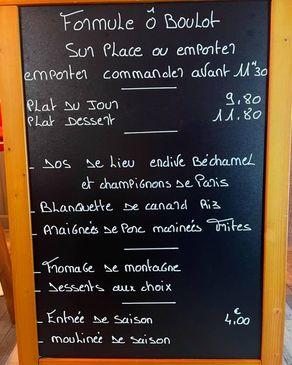 Formule ô Boulot
Sur Place ou emporter
emporter commander avant 11H30
Plat Du Jour 9,80
Plat Dessert 11.80
- Dos de Lieu endive Béchamel
et champignons de Paris
- Blanquette de canard Riz
- Araignées de Porc marinées Frites
- Fromage de montagne
- Desserts aux choix
- Entrée de saison 4,00 €
- moulinée de saison